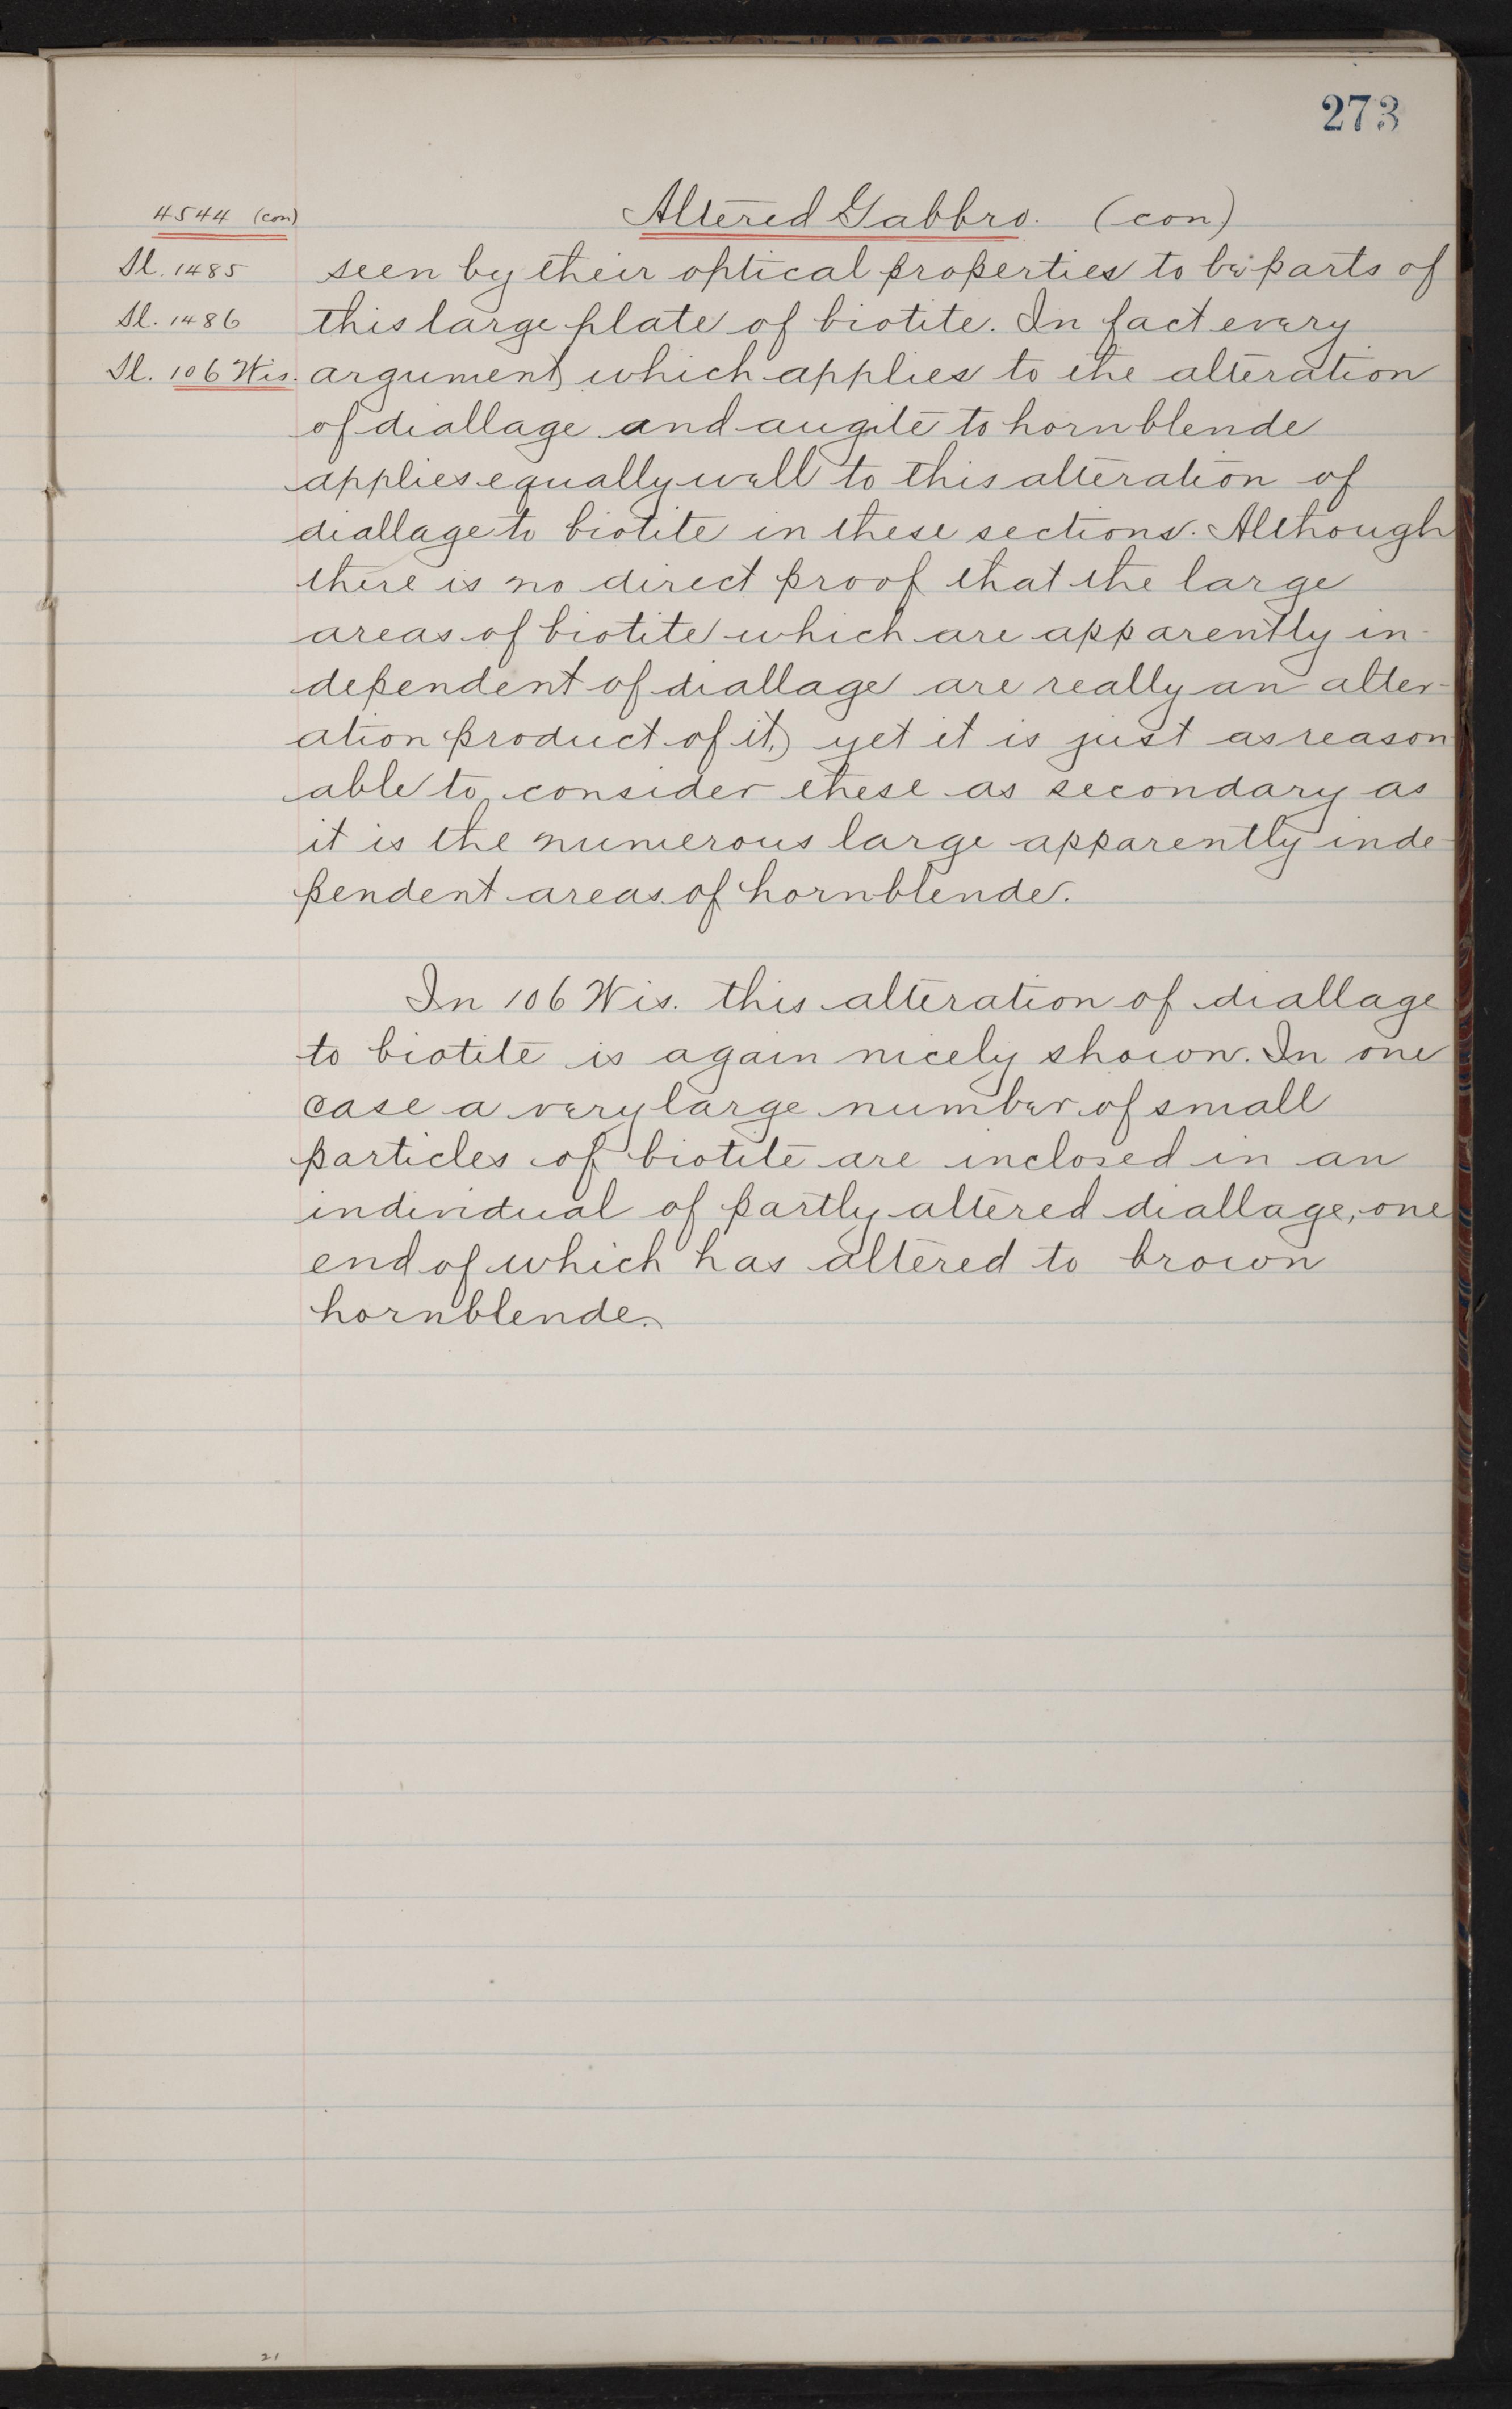 273
4544 (con) Altered Gabbro. (con)
Sl. 1485 seen by their optical properties to be parts of
Sl. 1486 this large plate of biotite. In fact every
Sl. 106 Wis. argument, which applies to the alteration
of diallage and augite to hornblende
applies equally well to this alteration of
diallage to biotite in these sections. Although
there is no direct proof that the large
areas of biotite which are apparently in-
dependent of diallage are really an alter-
ation product of it, yet it is just as reason
able to consider these as secondary as
it is the numerous large apparently inde-
pendent areas of hornblende.
In 106 Wis. this alteration of diallage
to biotite is again nicely shown. In one
case a very large number of small
particles of biotite are inclosed in an
individual of partly altered diallage, one
end of which has altered to brown
hornblende.
21